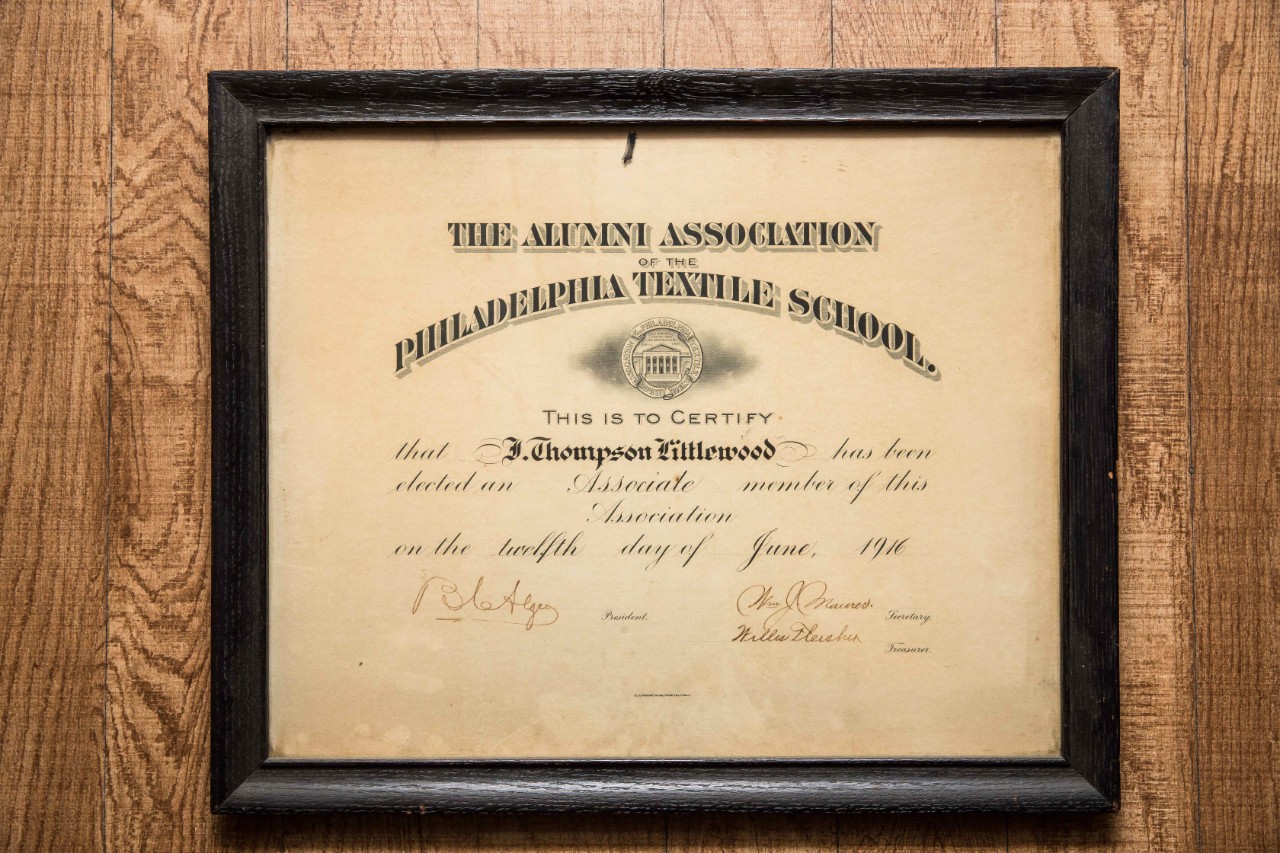 THE ALUMNI ASSOCIATION
OF THE
PHILADELPHIA TEXTILE SCHOOL.
THIS IS TO CERTIFY
that J. Thompson Littlewood has been
elected an Associate member of this
Association
on the twelfth day of June, 1916
President.
Wm J. Secretary.
Willis Fleisher
Treasurer.